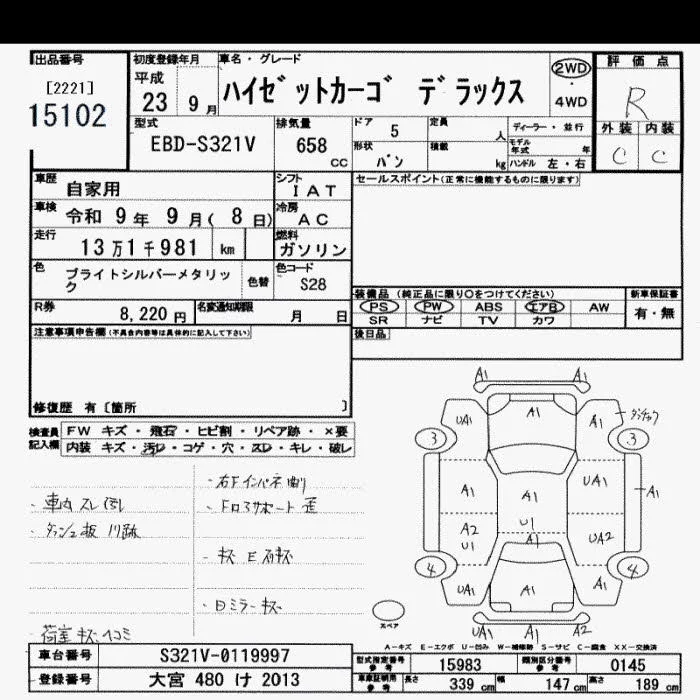 出品番号
[2221]
15102
初度登録年月
平成
23 9月
車名・グレード
ハイゼットカーゴ デラックス
2WD
・
4WD
評価点
R
外装 内装
C C
型式
EBD-S321V
排気量
658
CC
ドア 5
定員 人
形状 バン
積載 kg
ディーラー・並行
モデル年式 年
ハンドル 左・右
車歴 自家用
シフト IAT
車検 令和 9年 9月( 8日)
冷房 AC
走行 13万1千981 km
燃料 ガソリン
色 ブライトシルバーメタリック
色替
色コード S28
R券 8,220円
名変通知期限 月 日
セールスポイント(正常に機能するものに限ります)
装備品 (純正品に限り〇をつけてください)
新車保証書
PS PW ABS エアB AW
有・無
SR ナビ TV カワ
後日品
注意事項申告欄(不具合内容等は具体的に記入して下さい)
修復歴 有〔箇所 〕
検査員記入欄
FW キズ・飛石・ヒビ割・リペア跡・×要
内装 キズ・汚レ・コゲ・穴・スレ・キレ・破レ
・車内スレ
・右Fインパネ
・ダッシュ板
・Fロアサポート 歪
・キズ E
・日ミラーキズ
荷室キズ ヘコミ
A1 A1
UA1 A1 A1
3 3
A1 UA1
A1
A1
A2 U1 U1 A1 UA2
4 4
UA1 A1 A1
UA1 A1 A2
スペア
A-キズ E-エクボ U-凹み W-補修跡 S-サビ C-腐食 XX-交換済
車台番号 S321V-0119997
登録番号 大宮 480 け 2013
型式指定番号 参考 15983
類別区分番号 参考 0145
車庫証明用 参考
長さ 339 cm
幅 147 cm
高さ 189 cm